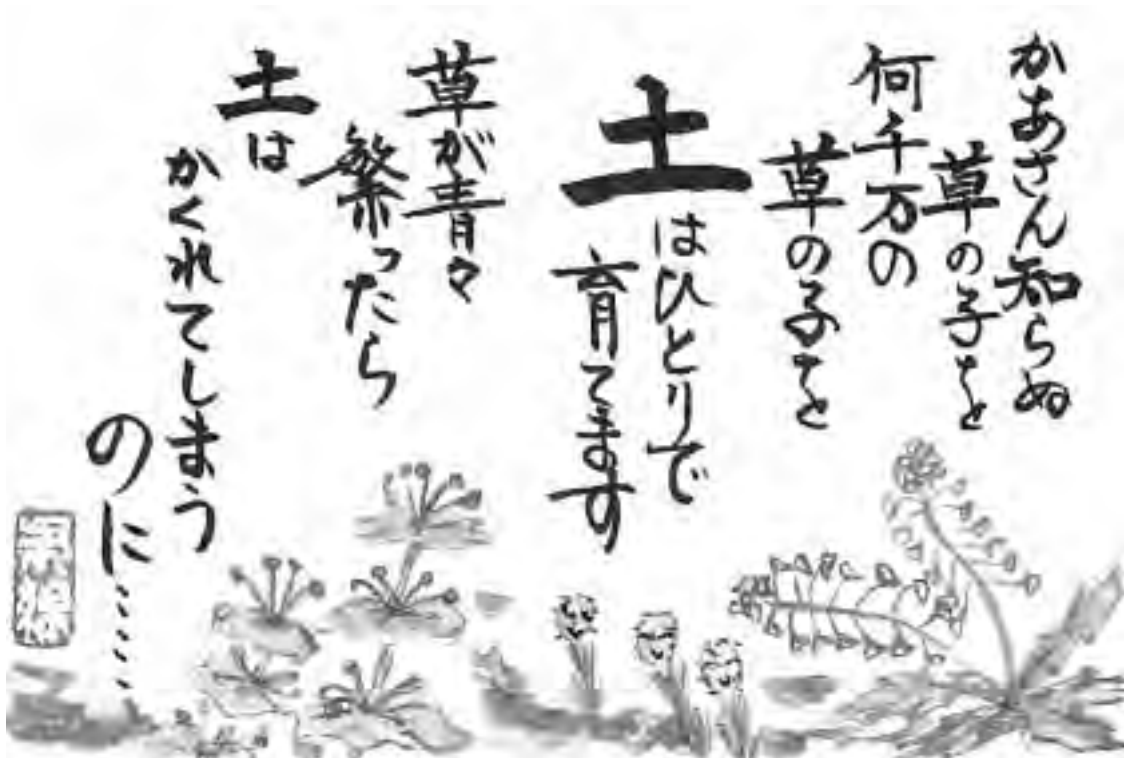 かあさん知らぬ
草の子を
何千万の
草の子を
土はひとりで
育てます
草が青々
繁ったら
土は
かくれてしまう
のに……